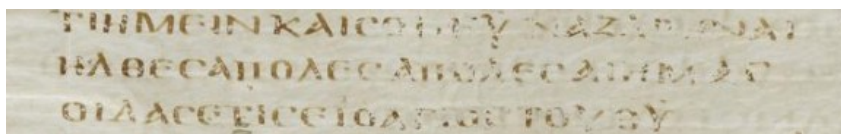 ΤΙΗΜΕΙΝΚΑΙCΟΙΙΗΥ ΝΑΖΑΡΗΝΑΙ
ΗΛΘΕCΑΠΟΛΕCΑΠΟΛΕCΑΙΗΜΑC
ΟΙΔΑCΕΤΙCΕΙΟΑΓΙΟCΤΟΥΘΥ